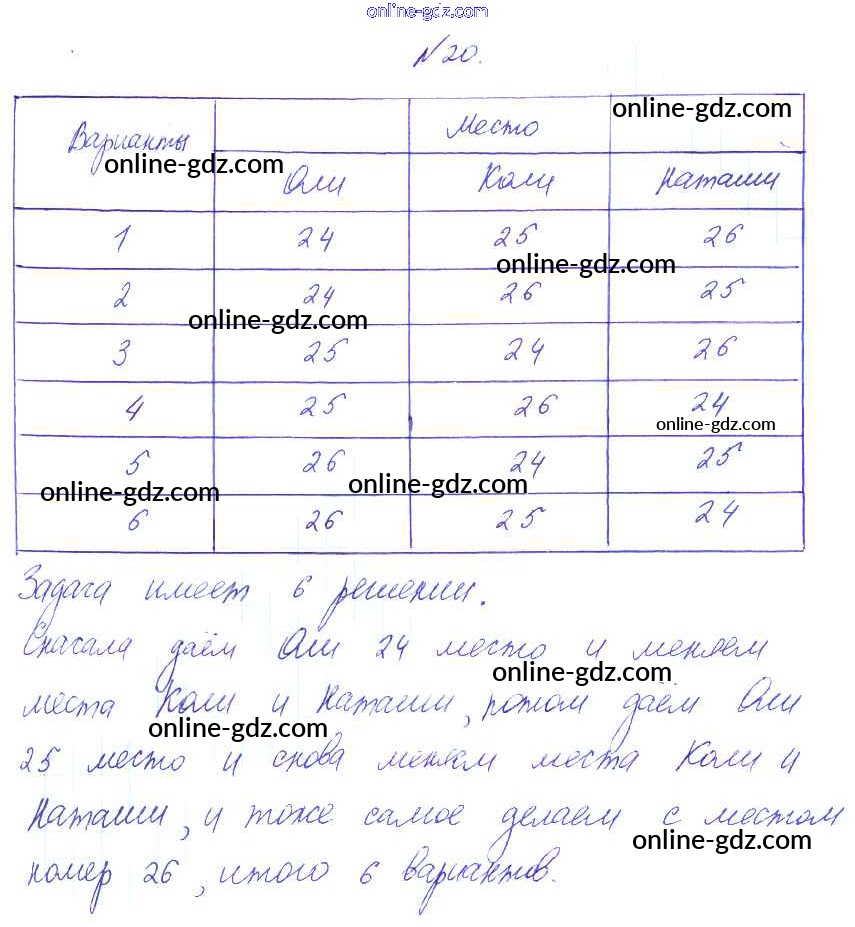 online-gdz.com
№20.
online-gdz.com
Варианты Место
online-gdz.com
Оли Коли Наташи
1 24 25 26
online-gdz.com
2 24 26 25
online-gdz.com
3 25 24 26
4 25 26 24
online-gdz.com
5 26 24 25
online-gdz.com online-gdz.com
6 26 25 24
Задача имеет 6 решении.
Сначала даём Оли 24 место и меняем
online-gdz.com
места Коли и Наташи, потом даём Оли
online-gdz.com
25 место и снова меняем места Коли и
Наташи, и тоже самое делаем с местом
online-gdz.com
номер 26, итого 6 вариантов.